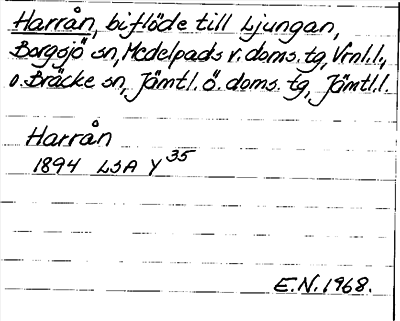 Harrån, biflöde till Ljungan,
Borgsjö sn, Medelpads v. doms. tg, Vrnl.l.,
o. Bräcke sn, Jämtl. ö. doms. tg, Jämtl.l.
Harrån
1894 LSA Y35
E.N. 1968.